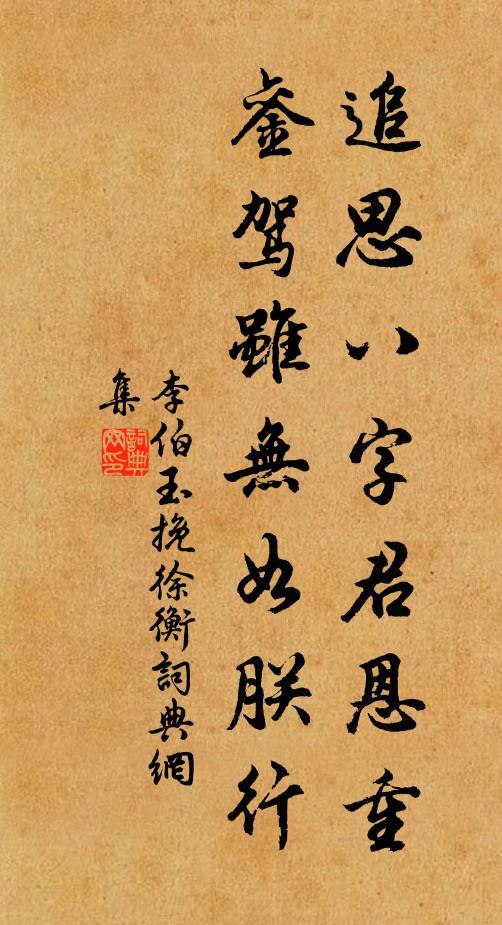 追思八字君恩重
銮驾雖無如朕行
李伯玉挽徐衡詞典網
集
詞典
网印